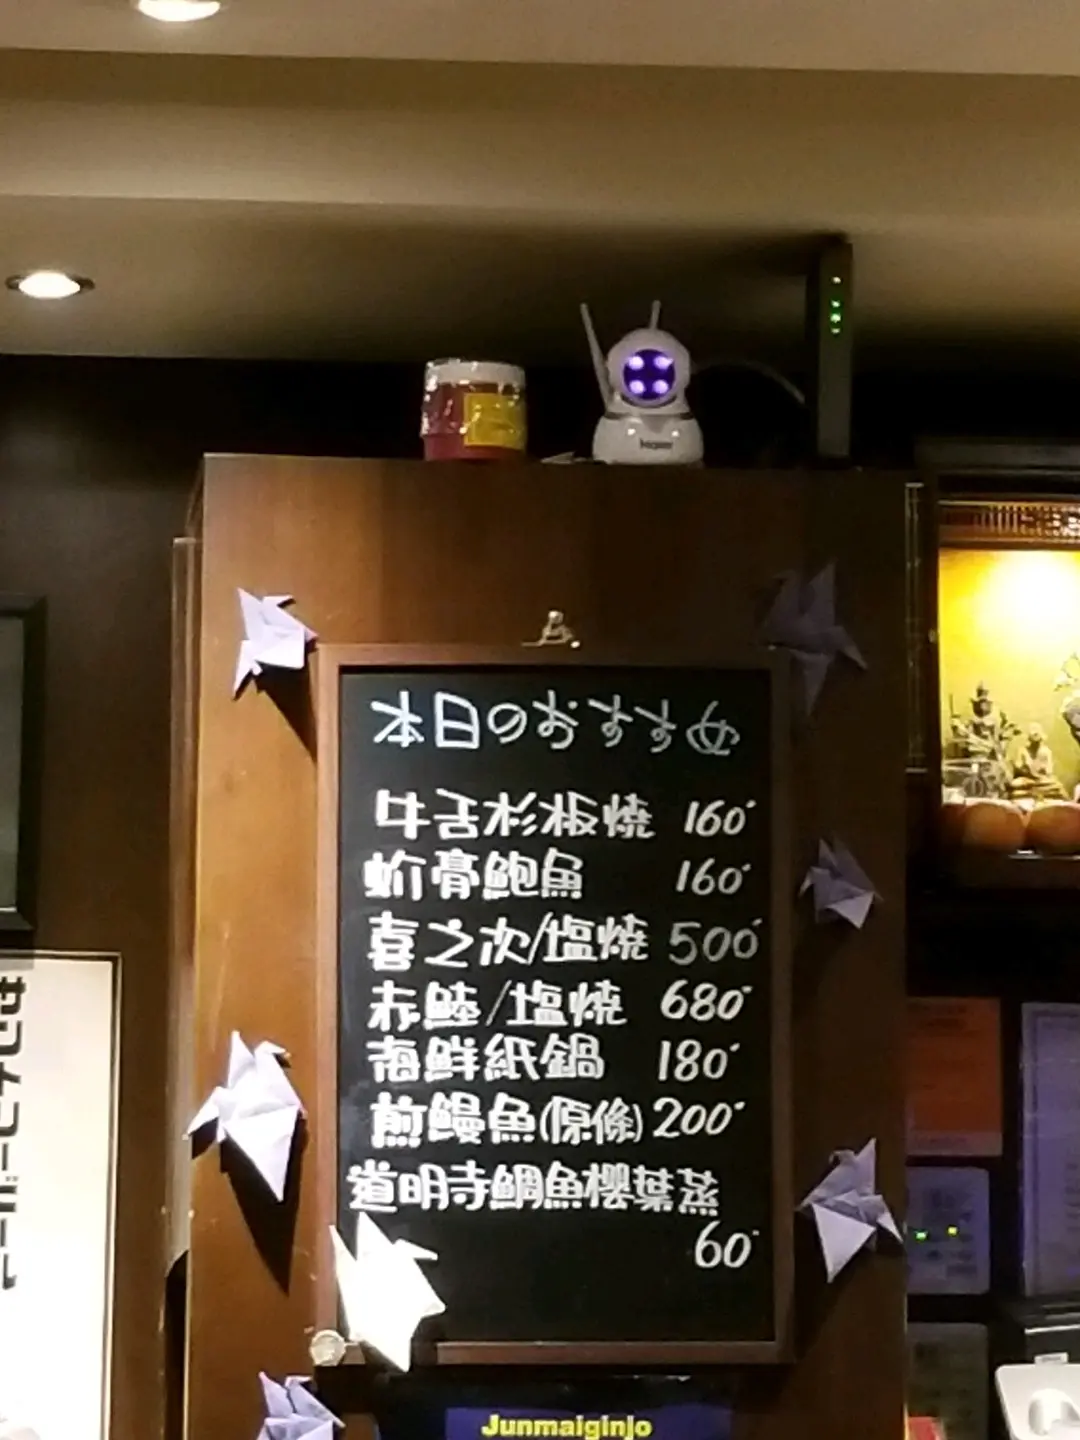 Haier
本日のおすすめ
牛舌杉板焼 160
蚧膏鮑魚 160
喜之次/塩焼 500
赤鯥/塩焼 680
海鮮紙鍋 180
煎鰻魚(原條) 200
道明寺鯛魚櫻葉蒸
60
サントリービール
Junmaiginjo